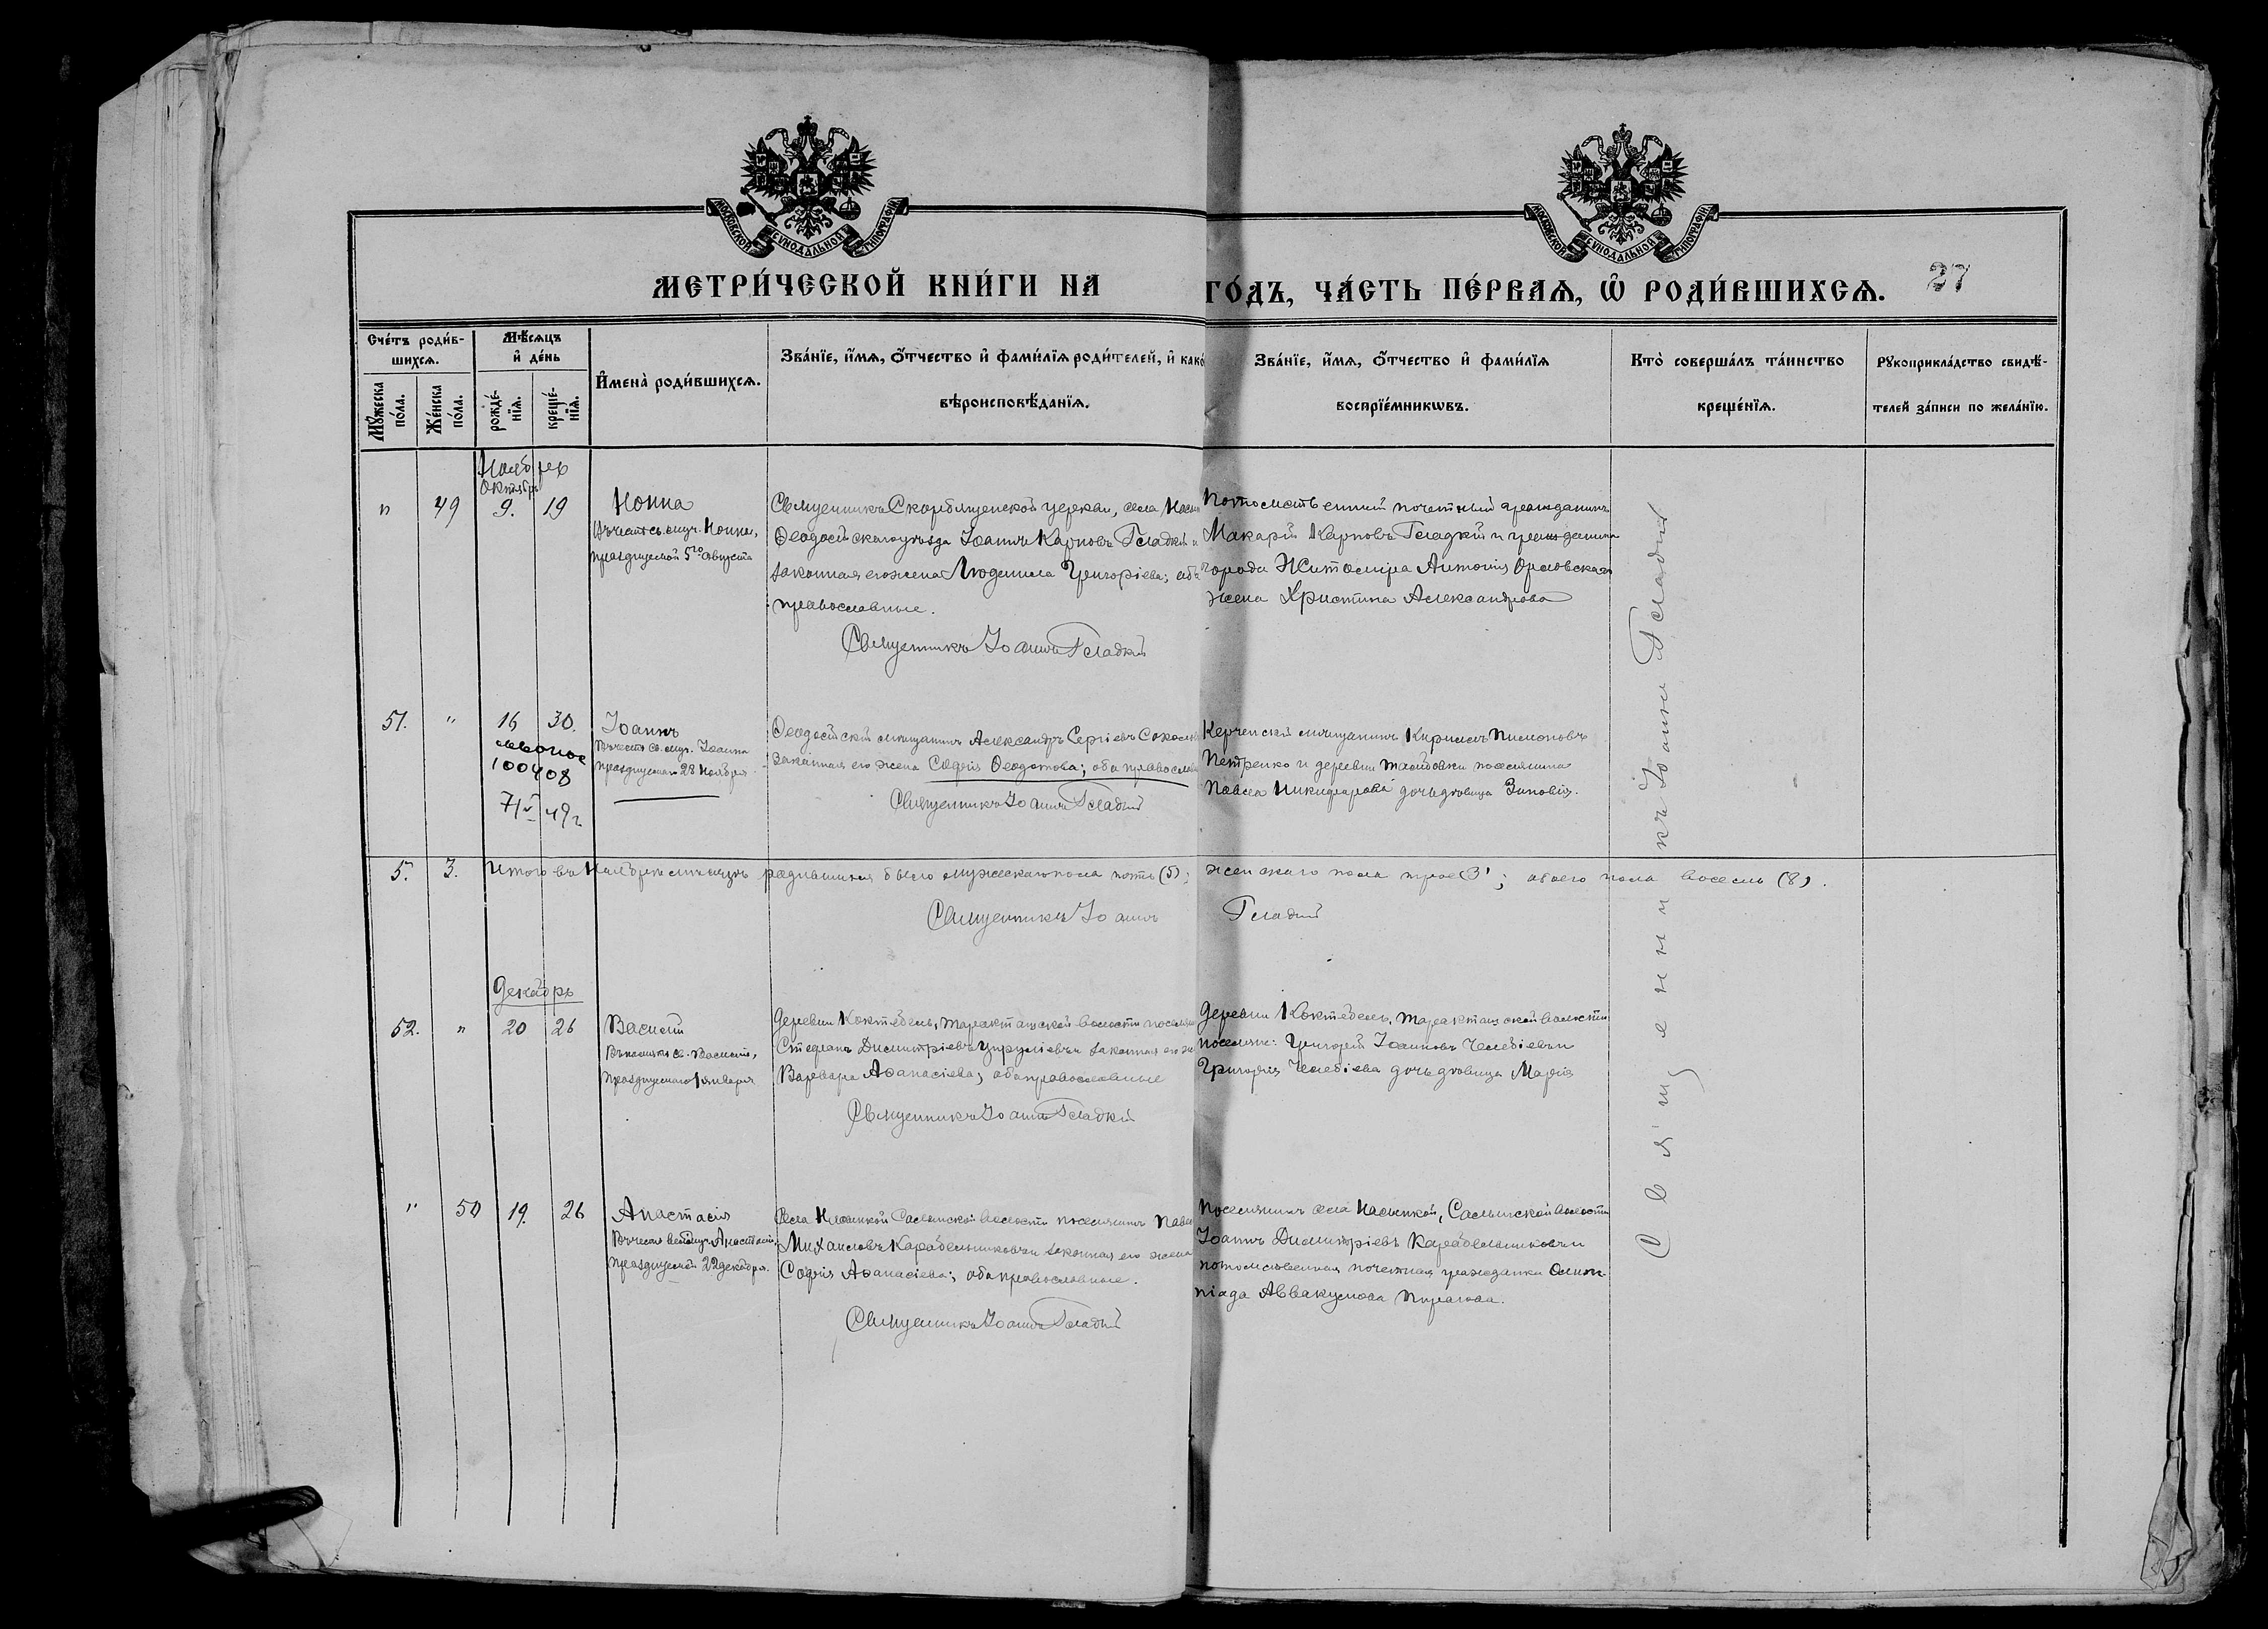 МОСКОВСКОЙ СѴНОДАЛЬНОЙ ТИПОГРАФІИ
МОСКОВСКОЙ СѴНОДАЛЬНОЙ ТИПОГРАФІИ
МЕТРИ́ЧЕСКОЙ КНИ́ГИ НА ГО́ДЪ, ЧА́СТЬ ПЕ́РВАѦ, Ѽ РОДИ́ВШИХСѦ.
27
Сче́тъ роди́в-
шихсѧ.
Мꙋ́жеска по́ла.
Же́нска по́ла.
Мѣ́сѧцъ
и҆ де́нь
рожде́-
нїѧ.
креще́-
нїѧ.
И҆мена̀ роди́вшихсѧ.
Зва́нїе, и҆́мѧ, ѻ҆́тчество и҆ фами́лїѧ роди́телей, и҆ како
вѣроисповѣ́данїѧ.
Зва́нїе, и҆́мѧ, ѻ҆́тчество и҆ фами́лїѧ
воспрїе́мникѡвъ.
Кто̀ соверша́лъ та́инство
креще́нїѧ.
Рꙋкоприкла́дство свидѣ́-
телей за́писи по жела́нїю.
Ноябрь
Октябрь
" 49 9. 19 Нонна
въ честь св. муч. Нонны,
празднуемой 5го Августа
Священникъ Скорбященской церкви, села
Ѳеодосійскаго уѣзда Іоаннъ Карповъ Гладкій и
законная его жена Людмила Григоріева; оба
православные.
Священникъ Іоаннъ Гладкій
Потомственный почетный гражданинъ
Макарій Карповъ Гладкій и гражданина
города Житомира Антонія Орловскаго
жена Христина Александрова
51. " 16 30. Іоаннъ
въ честь св. муч. Іоанна
празднуемаго 28 Ноября
100408
49г
Ѳеодосійскій мѣщанинъ Александръ Сергіевъ
законная его жена Софія Ѳеодотова; оба православн
Священникъ Іоаннъ Гладкій
Керченскій мѣщанинъ Кириллъ Пимоновъ
Петренко и деревни поселянина
Павла Никифорова дочь дѣвица Зиновія.
5. 3. Итого въ Ноябрѣ мѣсяцѣ родившихся было мужескаго пола пять (5); женскаго пола трое (3); обоего пола восемь (8).
Священникъ Іоаннъ Гладкій
Декабрь
52. " 20 26 Василій
въ честь св. Василія,
празднуемаго 1 января
Деревни Коктебель, Таракташской волости поселян
Стефанъ Димитріевъ и законная его же
Варвара Аѳанасіева; оба православные
Священникъ Іоаннъ Гладкій
Деревни Коктебель, Таракташской волости
поселяне: Григорій Іоанновъ Челебіевъ и
Григорія Челебіева дочь дѣвица Марія
" 50 19. 26 Анастасія
въ честь великомуч. Анастасіи,
празднуемой 22 декабря.
Села Насыпкой Салынской волости поселянинъ Павел
Михаиловъ Карабельниковъ и законная его жена
Софія Аѳанасіева; оба православные.
Священникъ Іоаннъ Гладкій
Поселянинъ села Насыпкой, Салынской волости
Іоаннъ Димитріевъ Карабельниковъ и
потомственная почетная гражданка Олим-
піада Аввакумова Пирогова.
Священникъ Іоаннъ Гладкій